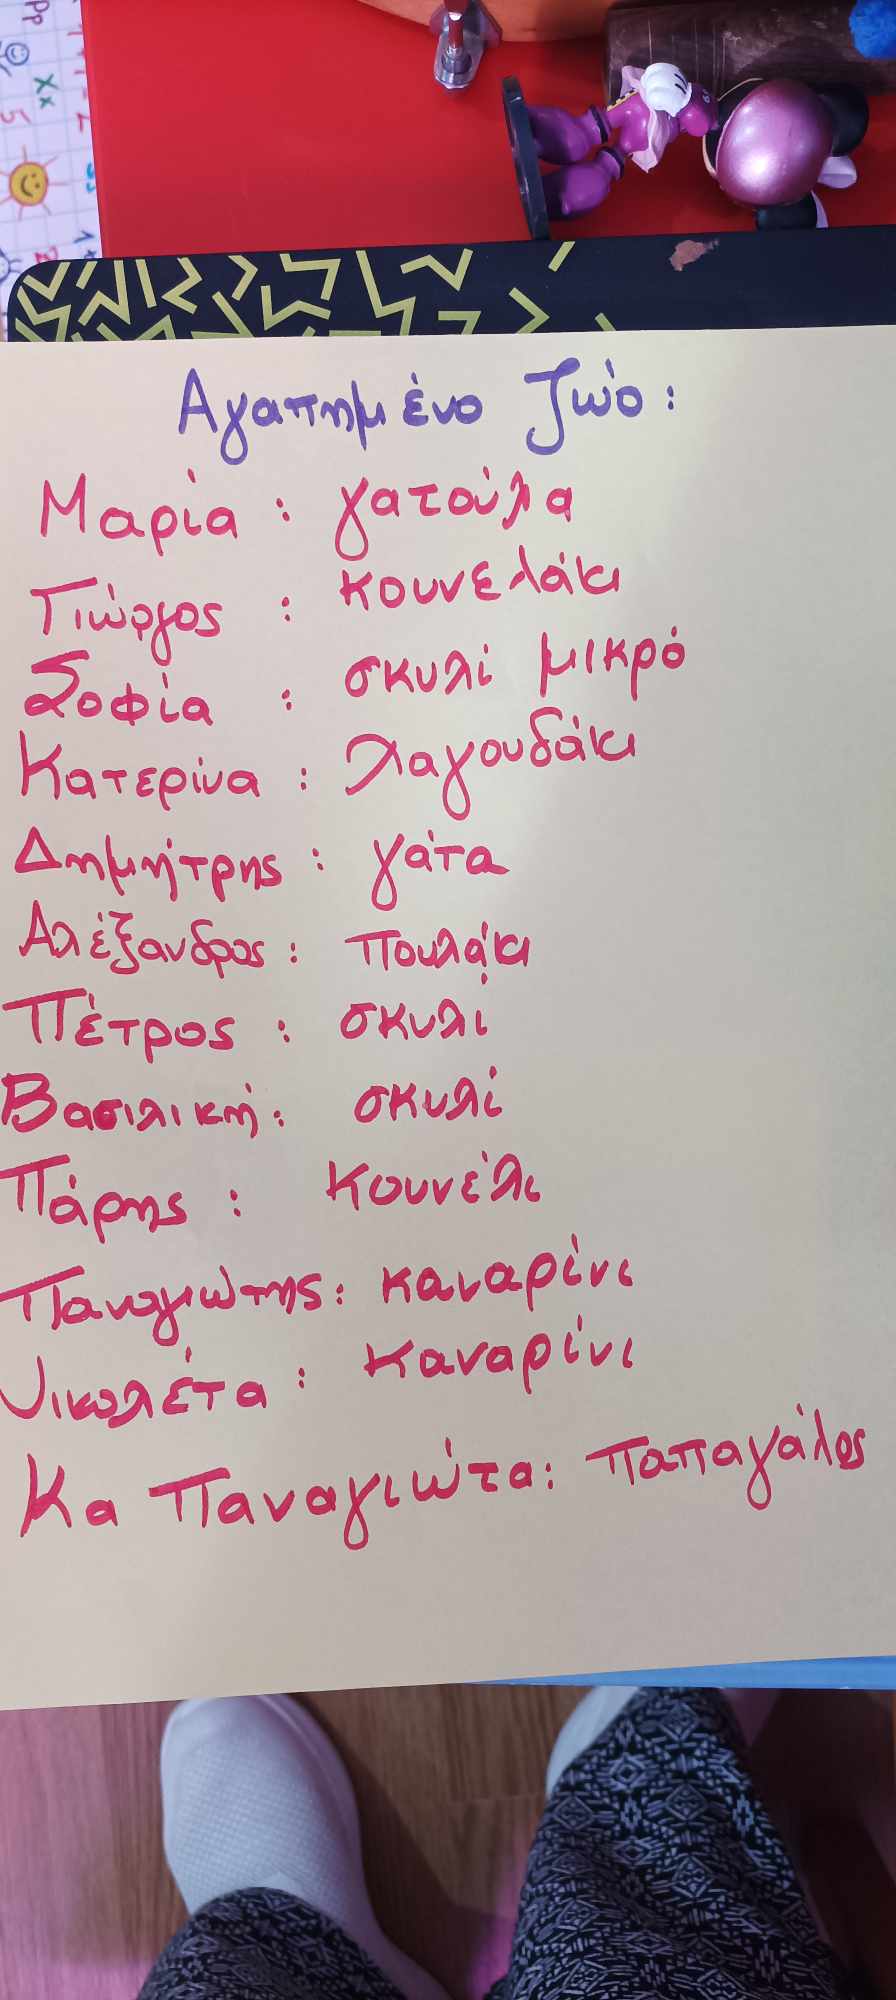 Αγαπημένο ζώο:
Μαρία : γατούλα
Γιώργος : κουνελάκι
Σοφία : σκυλί μικρό
Κατερίνα : λαγουδάκι
Δημήτρης : γάτα
Αλέξανδρος : πουλάκι
Πέτρος : σκυλί
Βασιλική : σκυλί
Πάρης : κουνέλι
Παναγιώτης : καναρίνι
Νικολέτα : καναρίνι
Κα Παναγιώτα : παπαγάλος